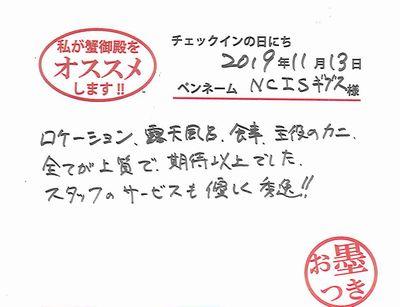 私が蟹御殿を
オススメ
します!!
チェックインの日にち
2019年11月13日
ペンネーム NCISギブス様
ロケーション、露天風呂、食事、主役のカニ、
全てが上質で、期待以上でした。
スタッフのサービスも優しく秀逸!!
お墨
つき